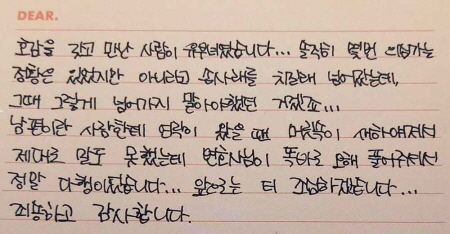 DEAR.
호감을 갖고 만난 사람이 유부녀였습니다... 솔직히 몇번 의심가는
정황은 있었지만 아니라고 손사래를 치길래 넘어갔는데,
그때 그렇게 넘어가지 말아야했던 거겠죠...
남편이란 사람한테 연락이 왔을 땐 머릿속이 새하얘져서
제대로 말도 못했는데 변호사님이 똑바로 오해 풀어주셔서
정말 다행이었습니다... 앞으로는 더 조심하겠습니다...
죄송하고 감사합니다.